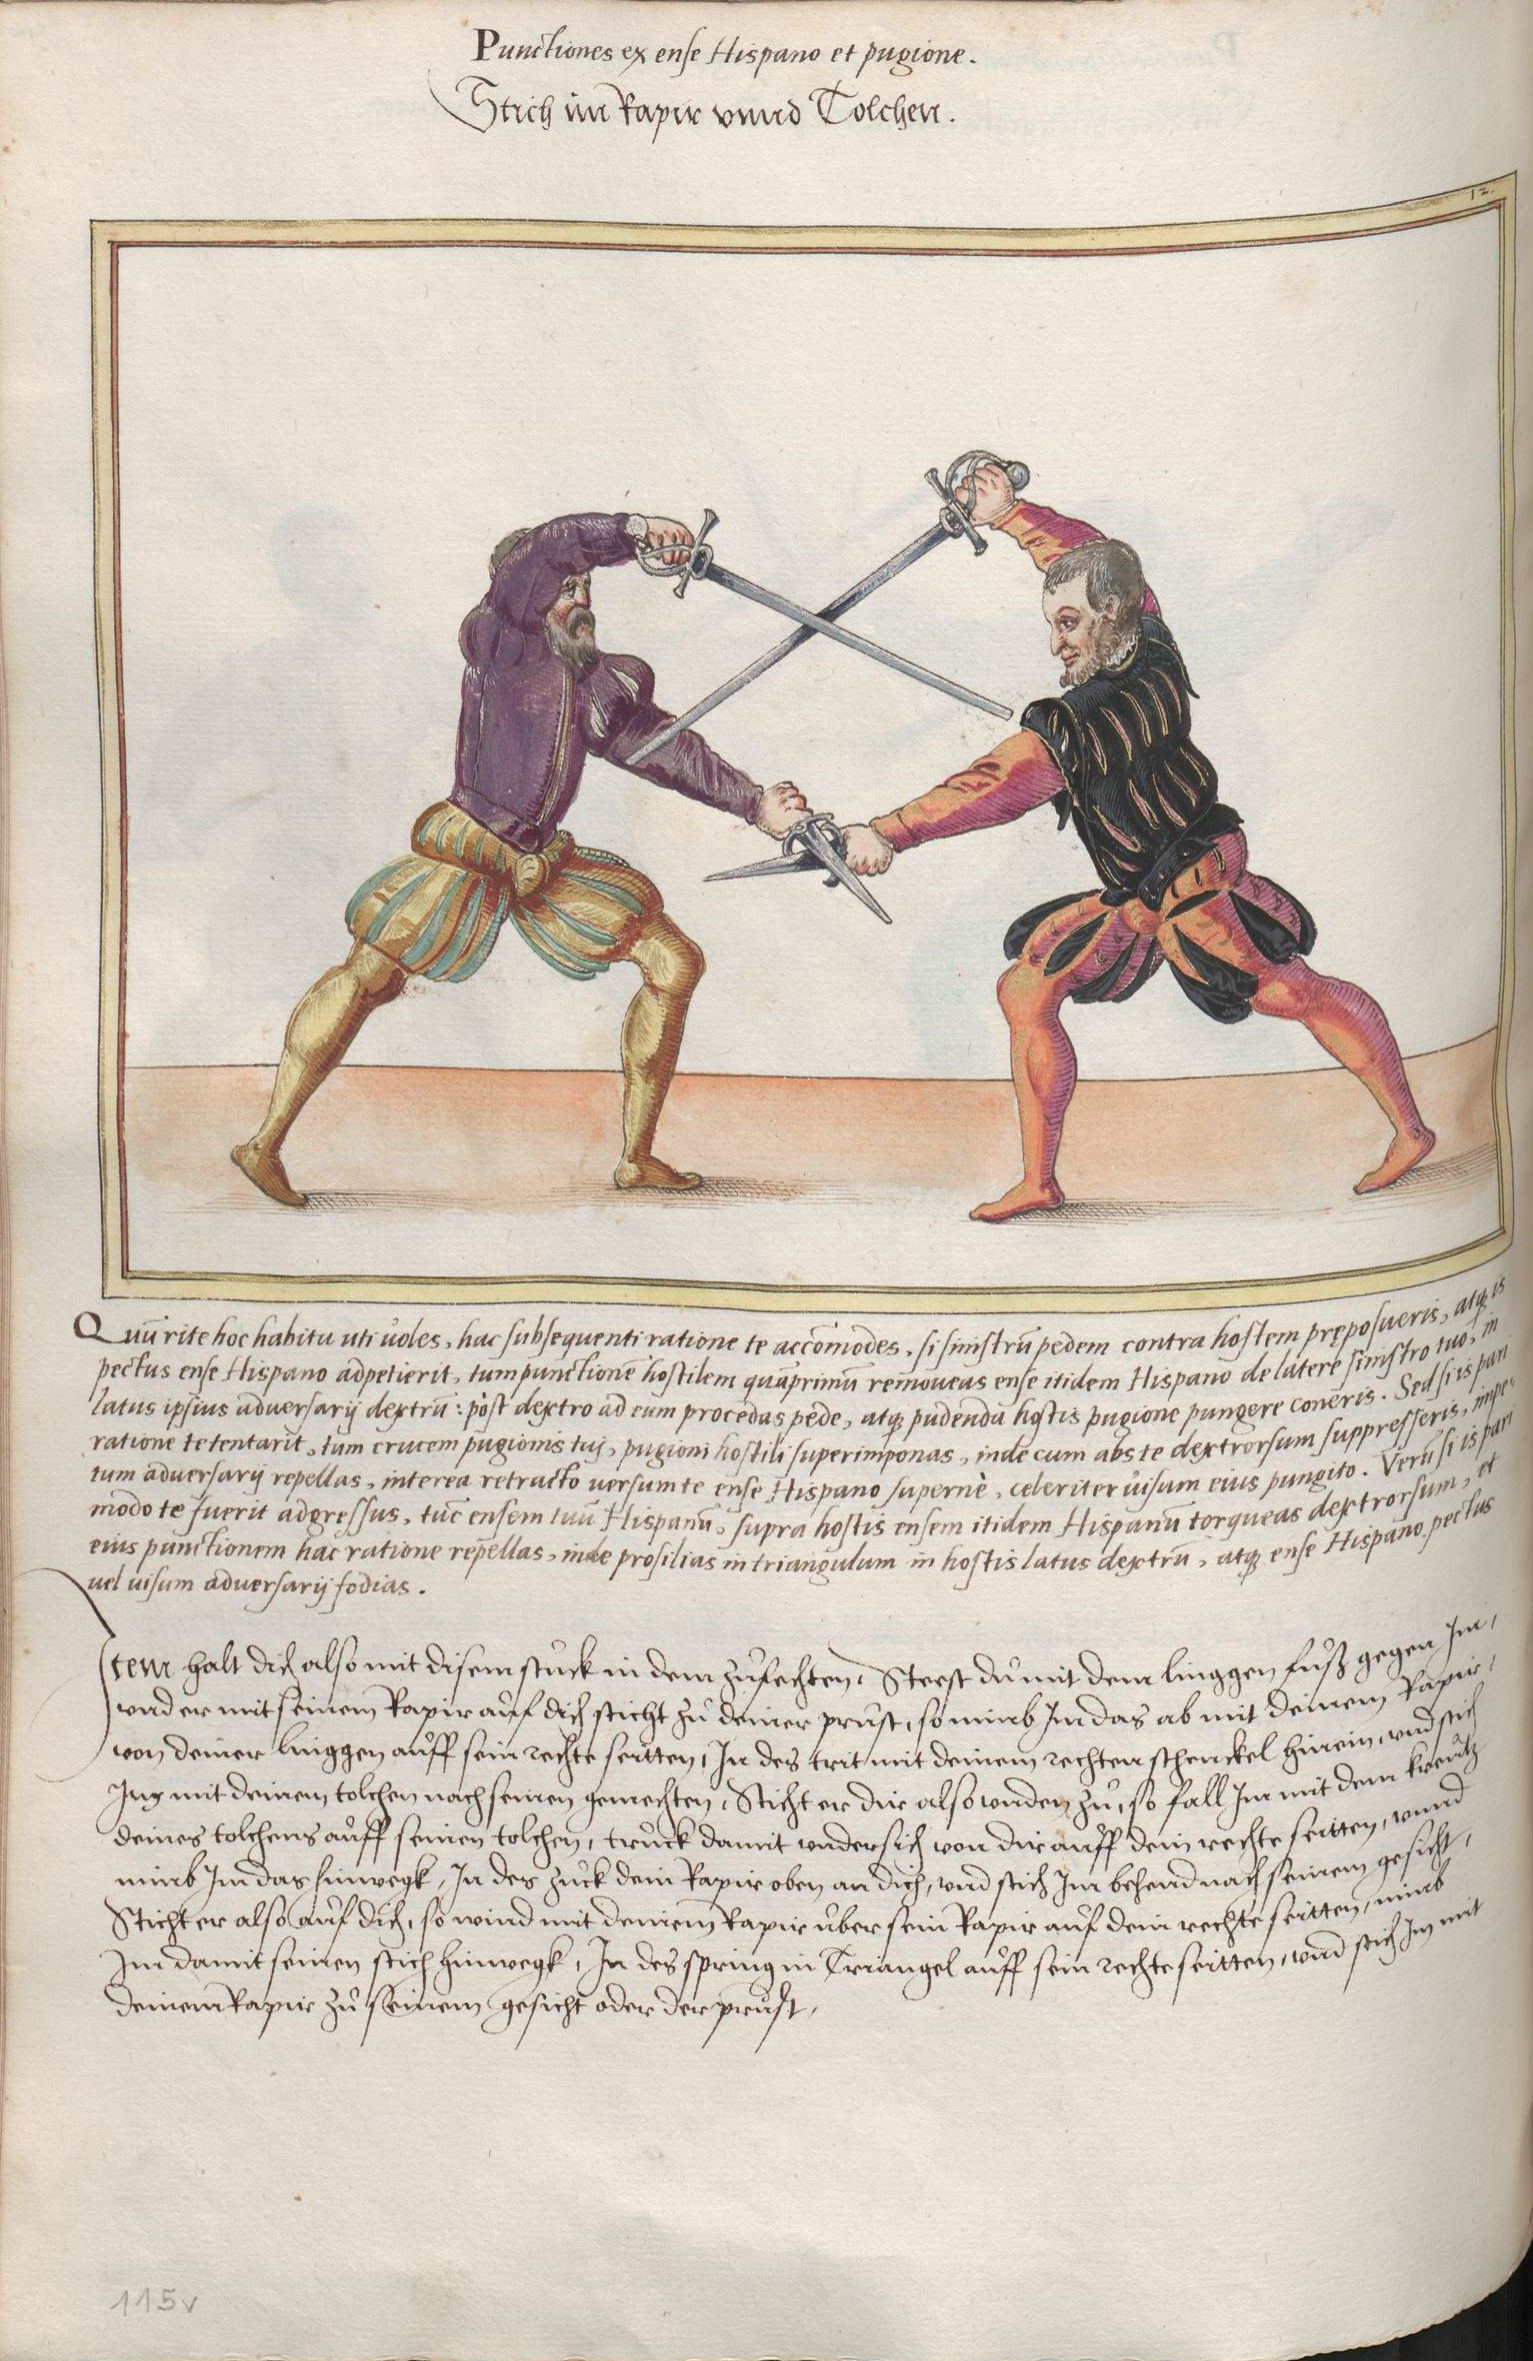 Punctiones ex ense Hispano et pugione.
Stich im Rapir vnnd Tolchen.
12.
Quū rite hoc habitu uti uoles, hac subsequenti ratione te accōmodes, si sinistrū pedem contra hostem pręposueris, atq; is
pectus ense Hispano adpetierit, tum punctionē hostilem quāprimū remoueas ense itidem Hispano de latere sinistro tuo, in
latus ipsius aduersarij dextrū: pòst dextro ad eum procedas pede, atq; pudenda hostis pugione pungere coneris. Sed si is pari
ratione te tentarit, tum crucem pugionis tuj, pugioni hostili superimponas, inde cum abs te dextrorsum suppresseris, impe-
tum aduersarij repellas, interea retracto uersum te ense Hispano supernè, celeriter uisum eius pungito. Verū si is pari
modo te fuerit adgressus, tūc ensem tuū Hispanū, supra hostis ensem itidem Hispanū torqueas dextrorsum, et
eius punctionem hac ratione repellas, inde prosilias in triangulum in hostis latus dextrū, atq; ense Hispano pectus
uel uisum aduersarij fodias.
Item halt dich also mit disem stuck in dem zůfechten, Steest du mit dem linggen fůß gegen Im,
vnd er mit seinem Rapir auf dich sticht zů deiner prust, so nimb Im das ab mit deinem Rapir,
von deiner linggen auff sein rechte seitten, In des trit mit deinem rechten schenckel hinein, vnd stich
Im mit deinem tolchen nach seinen gemechten, Sticht er dir also vnden zů, so fall Im mit dem kreutz
deines tolchens auff seinen tolchen, truck damit vndersich von dir auff dein rechte seitten, vnnd
nimb Im das hinwegk, In des zuck dein Rapir oben an dich, vnd stich Im behend nach seinem gesicht,
Sticht er also auf dich, so wind mit deinem Rapir über sein Rapir auf dein rechte seitten, nimb
Im damit seinen stich hinwegk, In des spring in Triangel auff sein rechte seitten, vnd stich Im mit
deinem Rapir zů seinem gesicht oder der prust,
115v